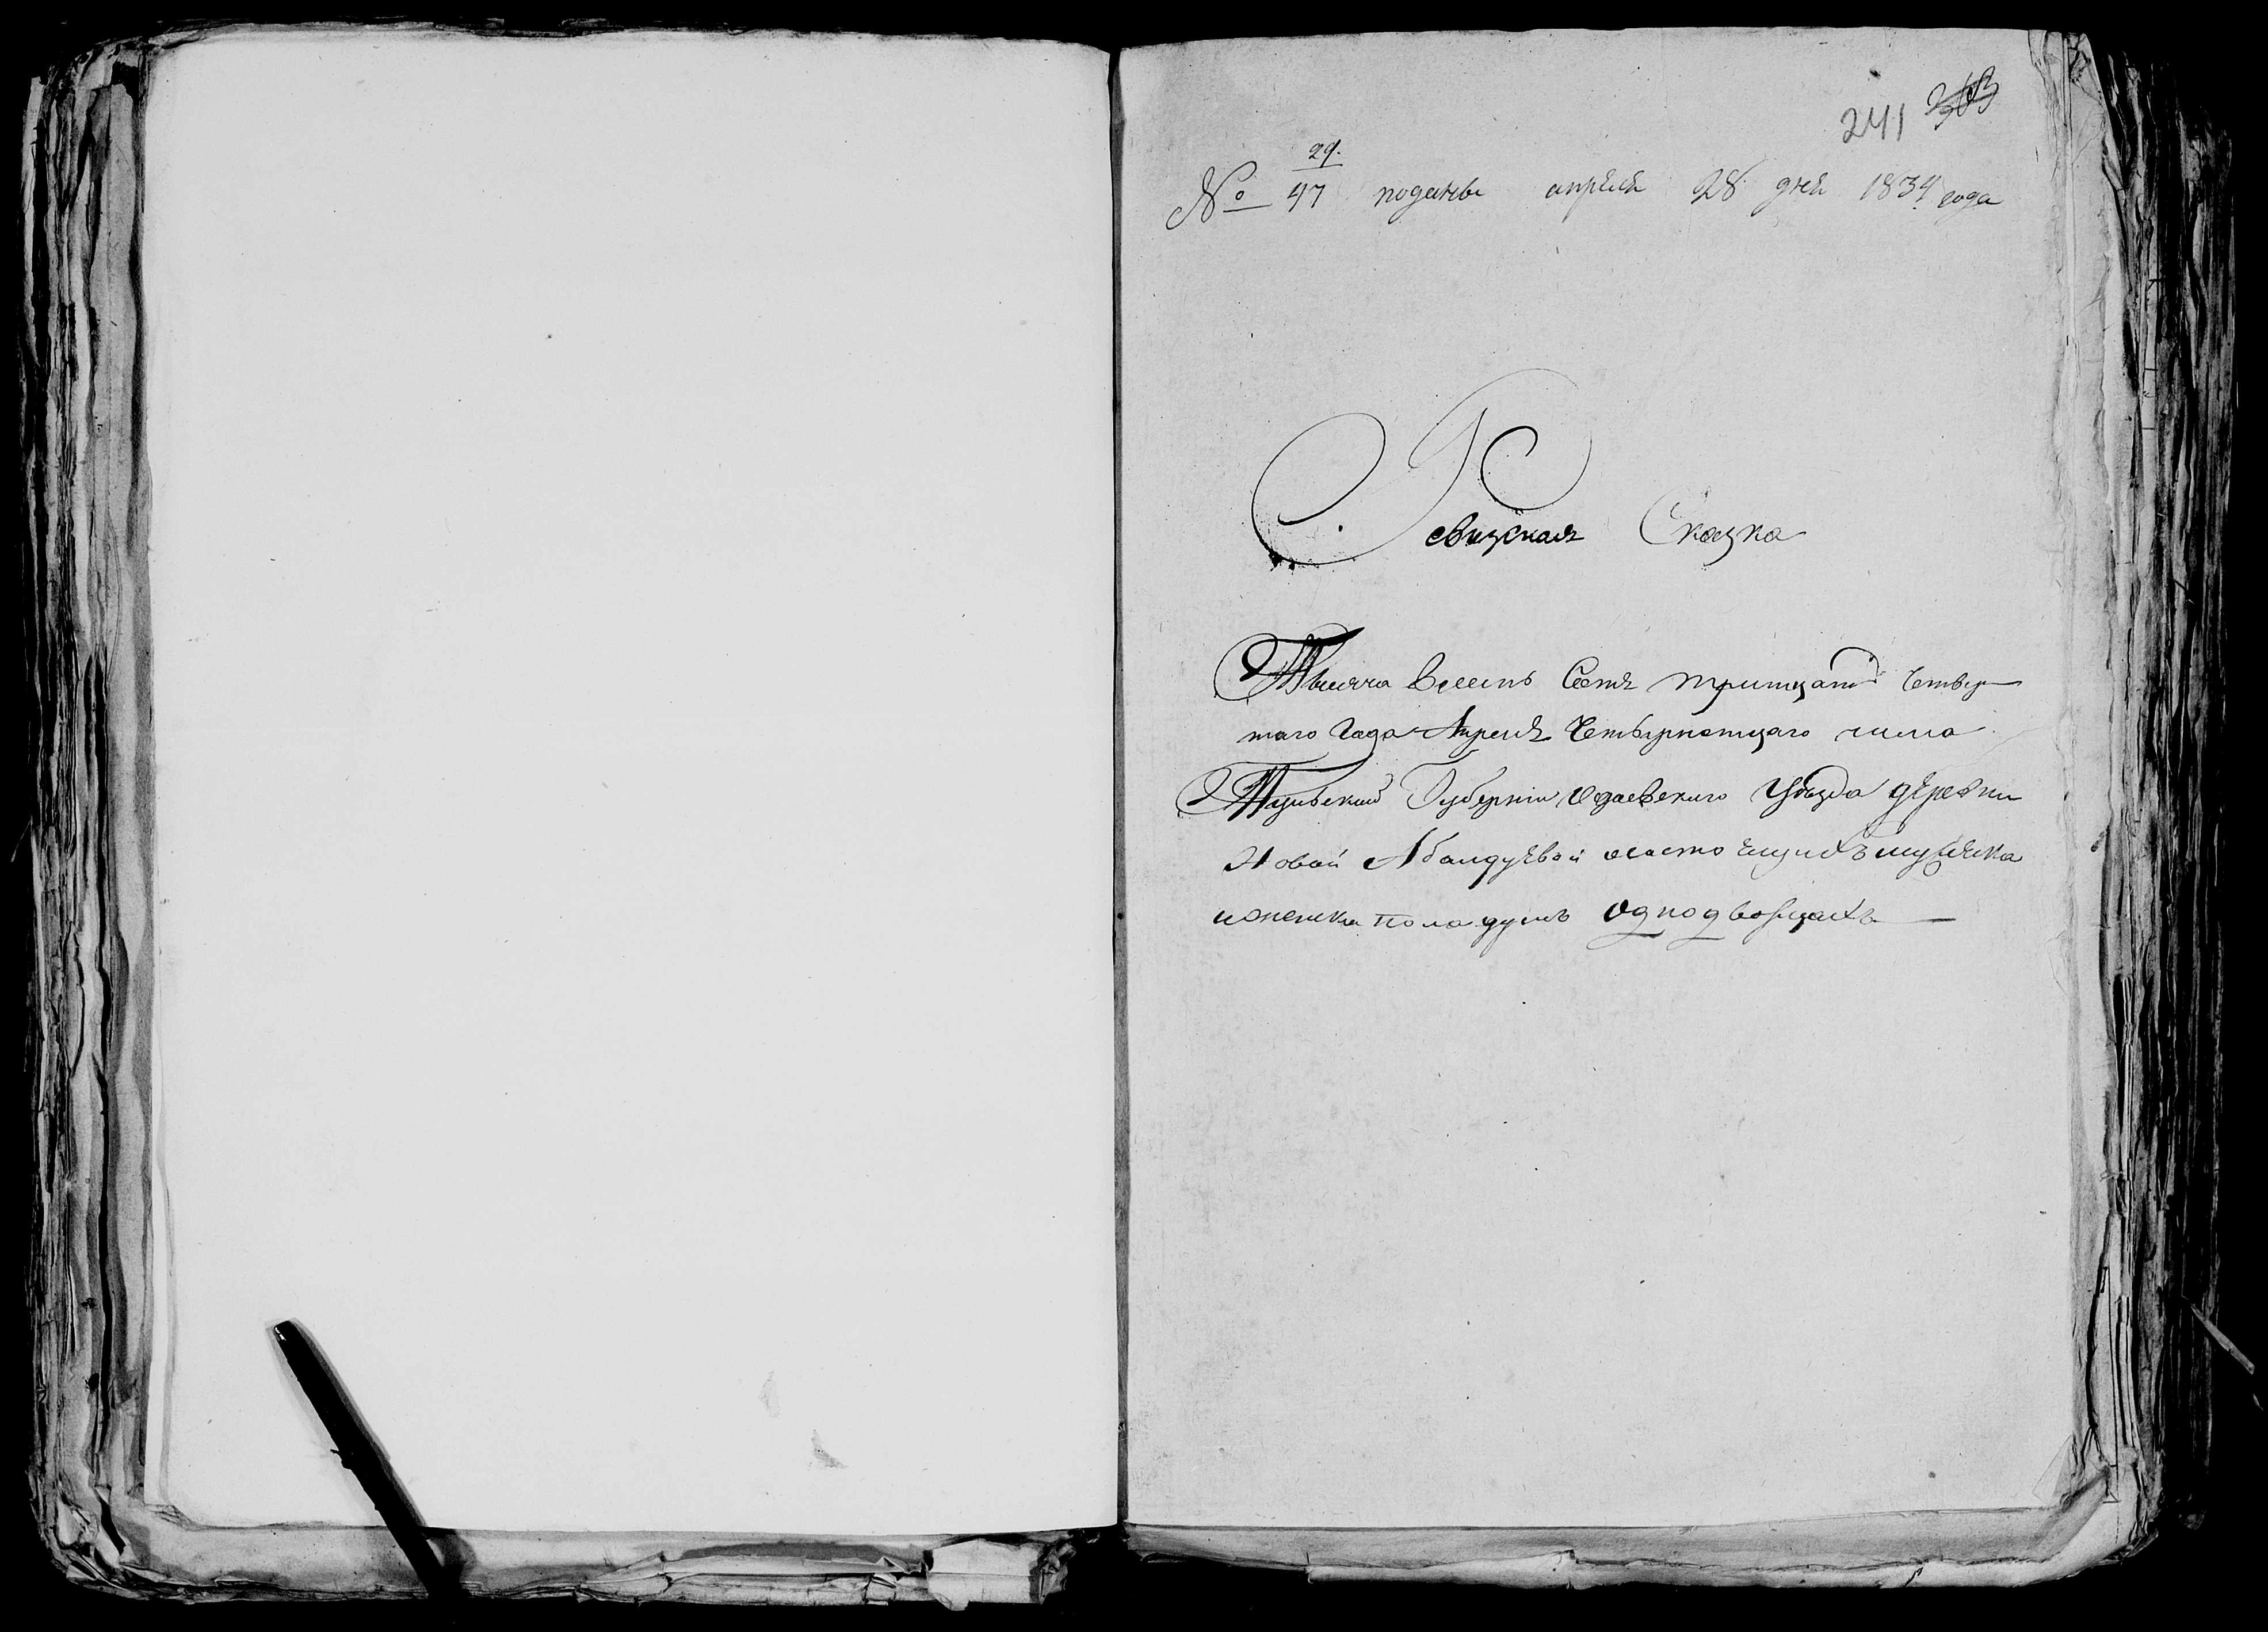 241 383
29.
№ 47 поданы апреля 28 дня 1834 года
Ревизская Сказка
Тысяча восемь Сотъ тритцать Четвер
таго Года Апреля Четырнатцаго числа
Тульской Губернии Одоевского Уезда деревни
Новой Абалдуевой осостоящихъ мужска
иженска пола душъ Однодворцахъ